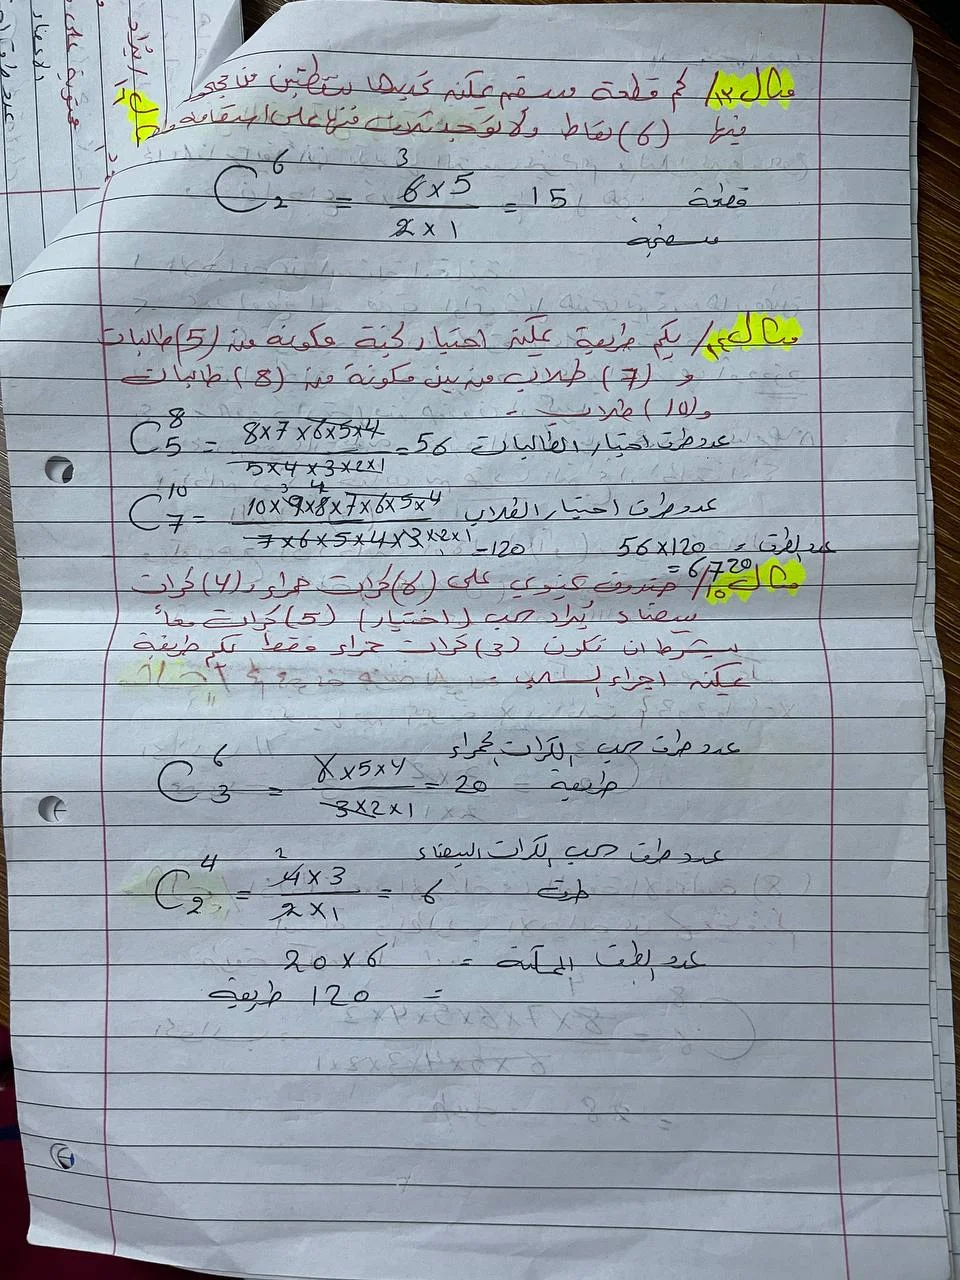 مثال ١٣/ كم قطعة مستقيم يمكنه تحديدها بنقطتين من
فيها (6) نقاط ولا توجد ثلاث منها على استقامة
C 6 2 = 6×5 / 2×1 = 15 قطعة
3
مثال / بكم طريقة يمكنه اختيار لجنة مكونة من (5) طالبات
و (7) طلاب من بين مكونة من (8) طالبات
و (10) طلاب -
C 8 5 = 8×7×6×5×4 / 5×4×3×2×1 = 56 عدد طرق اختيار الطالبات
C 10 7 = 10×9×8×7×6×5×4 / 7×6×5×4×3×2×1 = 120 عدد طرق اختيار الطلاب
عدد الطرق = 56×120
= 6720
مثال ١٥/ صندوق يحتوي على (6) كرات حمراء و (4) كرات
بيضاء يُراد سحب (اختيار) (5) كرات معاً
بشرط ان تكون (3) كرات حمراء فقط بكم طريقة
يمكنه اجراء السحب
عدد طرق سحب الكرات الحمراء
C 6 3 = 6×5×4 / 3×2×1 = 20 طريقة
عدد طرق سحب الكرات البيضاء
C 4 2 = 4×3 / 2×1 = 6 طرق
2
عدد الطرق الممكنة = 20×6
= 120 طريقة